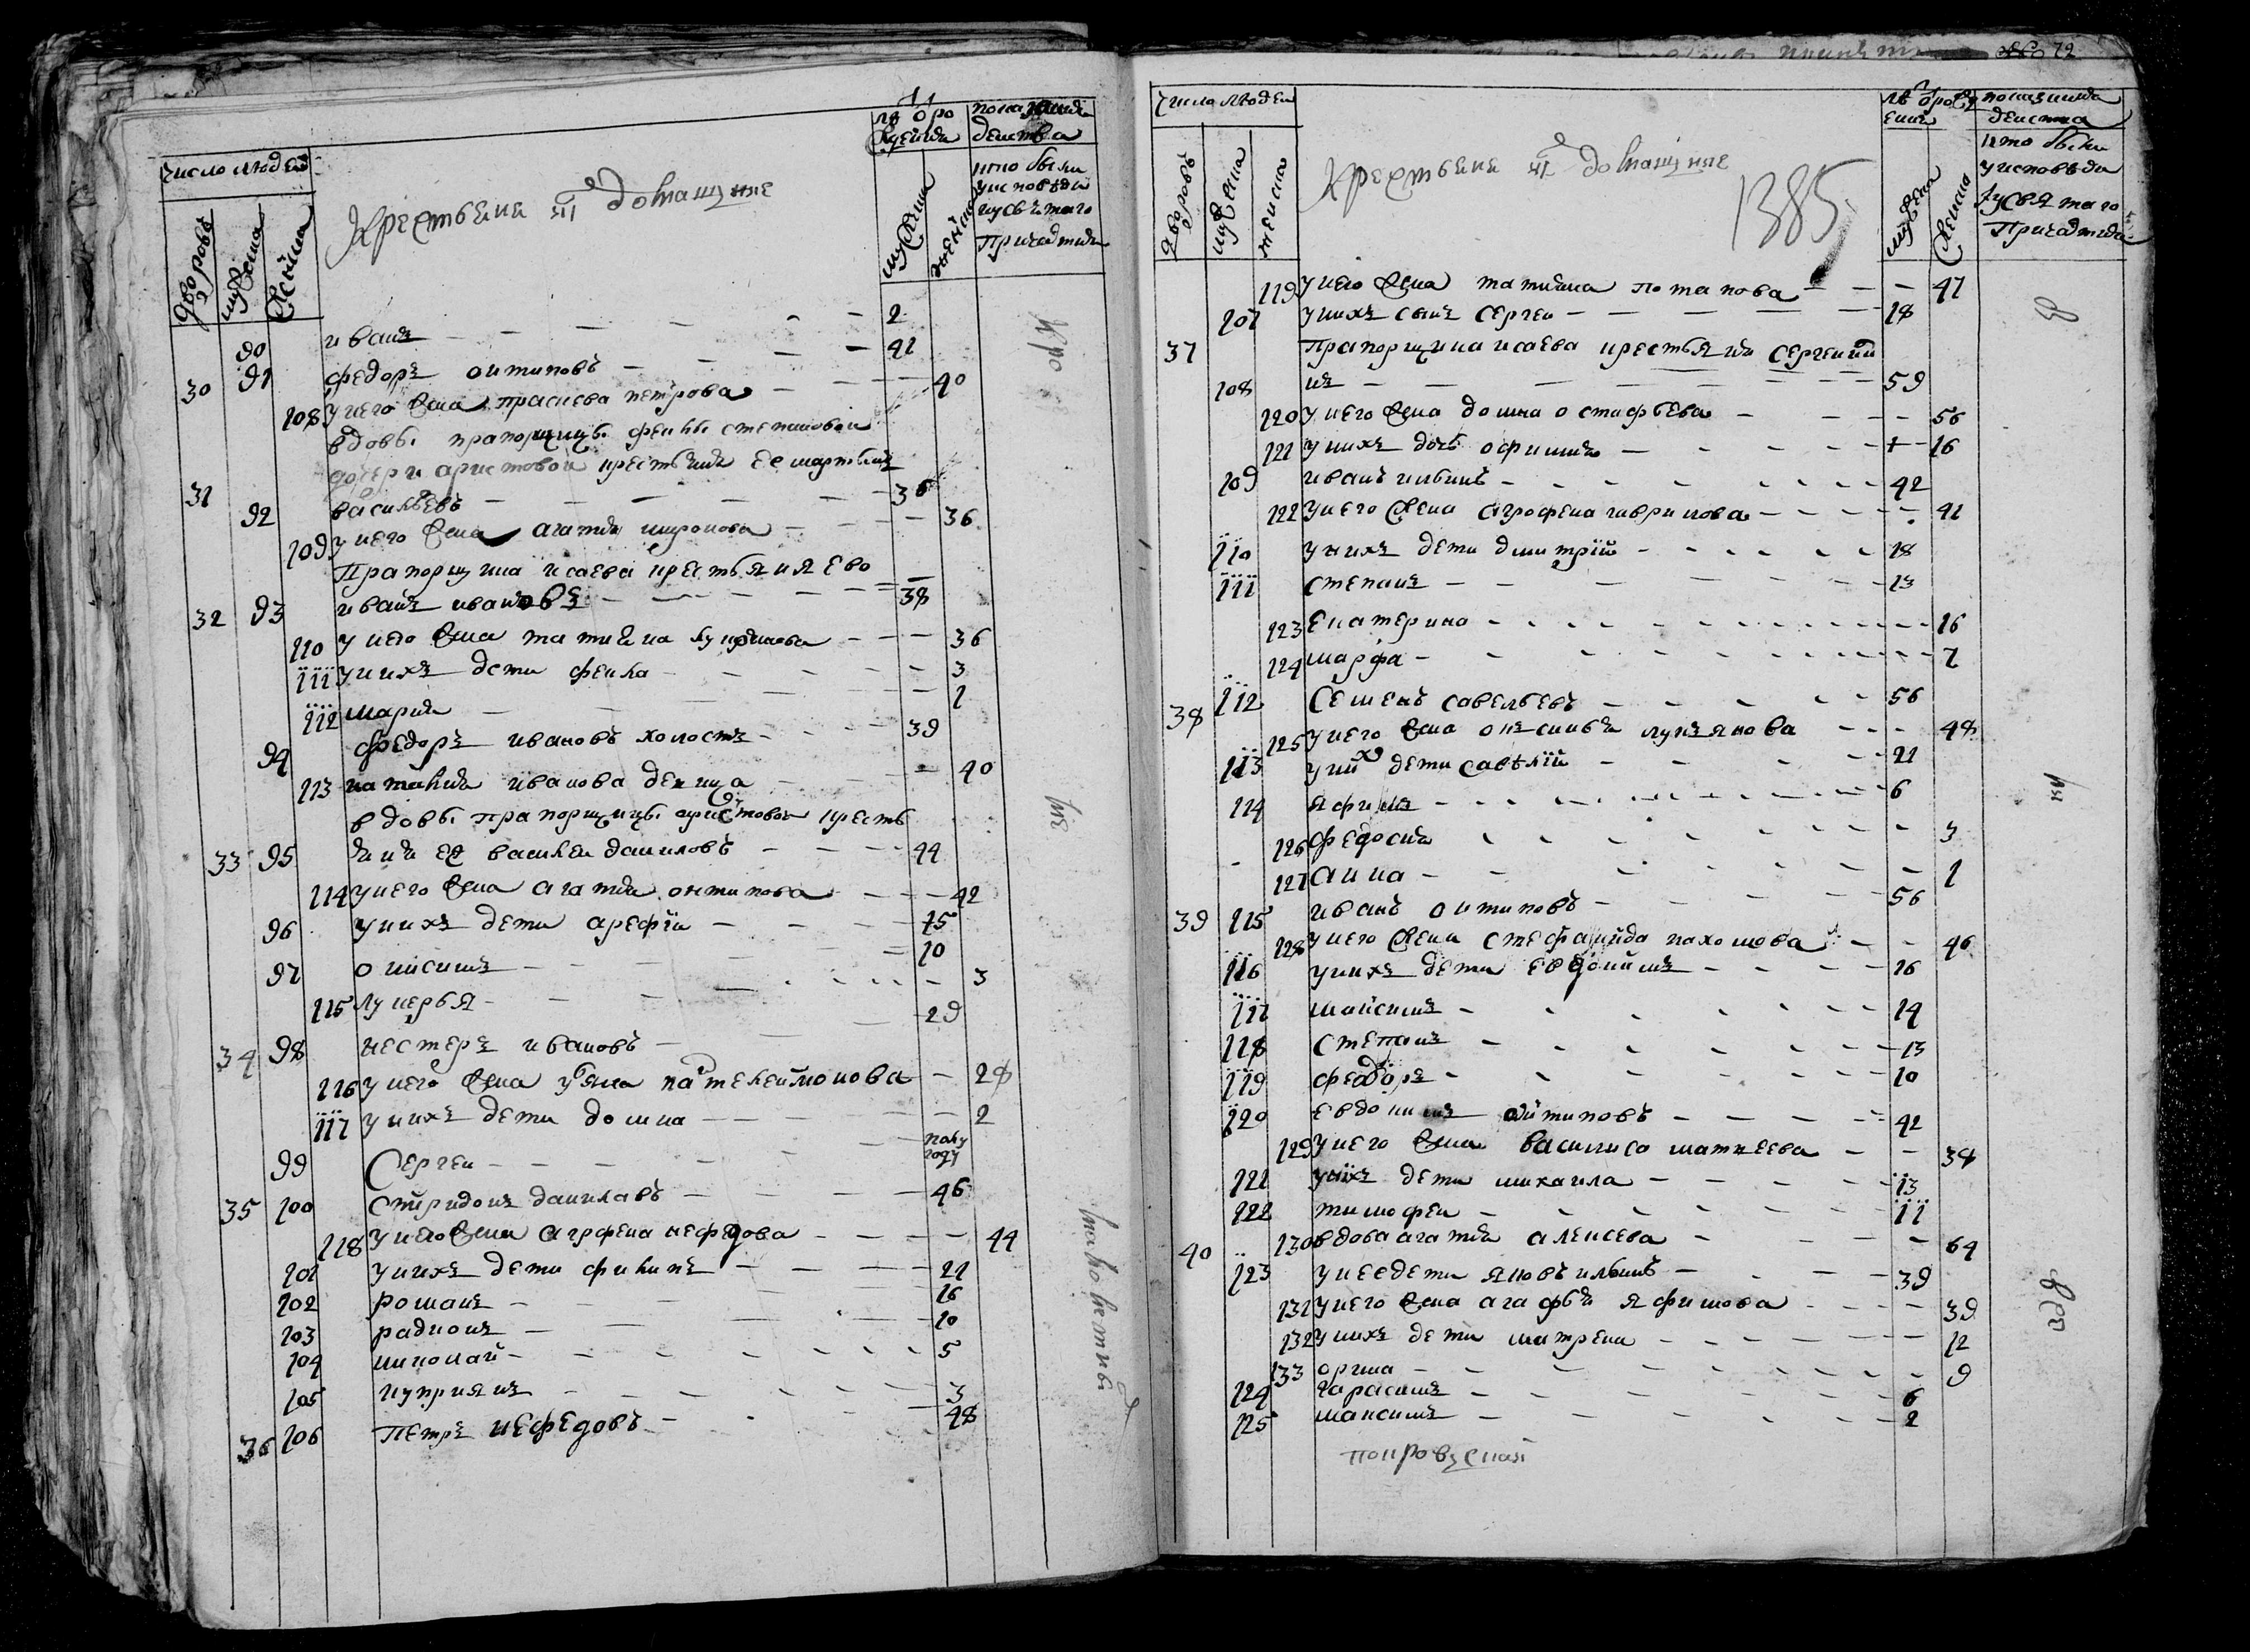 число людей
дворовъ
мужеска
женска
крестьяне и домашние
лѣ о ро
ждения
мужеска
женска
показания
действа
кто были
у исповеди
и у святаго
Причастия
90 иванъ 2
30 91 федоръ онтиповъ 41
108 у него жена прасковья петрова 40
вдовы прапорщицы феклы степановой
дочери аристовой крестьянинъ ее мартынъ
31 92 васильевъ 36
109 у него жена агатия миронова 36
Прапорщика исаева крестьяня ево
32 93 иванъ ивановъ 38
110 у него жена татияна куприянова 36
111 у нихъ дети фекла 3
112 мария 1
94 федоръ ивановъ холостъ 39
113 наталия иванова девица 40
вдовы прапорщицы аристовой кресть
33 95 янинъ ее василей даниловъ 44
114 у него жена агатия онтипова 42
96 у нихъ дети арефий 15
97 онисимъ 10
115 лукерья 3
34 98 нестеръ ивановъ 29
116 у него жена ульяна пантелеймонова 28
117 у нихъ дети домна 2
99 Сергей полу году
35 100 спиридонъ данилавъ 46
118 у него жена аграфена нефедова 44
101 у нихъ дети филипъ 21
102 романъ 16
103 радионъ 10
104 николай 5
105 куприянъ 3
36 106 Петръ нефедовъ 48
72
число людей
дворовъ
мужеска
женска
крестьяне и домашние
1385
лѣ о рож
ения
мужеска
женска
показания
действа
кто были
у исповеди
и у святаго
Причастия
119 у него жена татияна потапова 47
107 у нихъ сынъ сергей 18
37 Прапорщика исаева крестьянинъ сергей
108 59
120 у него жена домна остафьева 56
121 у нихъ дочь офимия 16
109 иванъ ильинъ 42
122 у него жена агрофена гаврилова 41
110 у нихъ дети димитрий 18
111 степанъ 13
123 Екатерина 16
124 марфа 7
38 112 Семенъ савельевъ 56
125 у него жена оксинья лукьянова 48
113 у них дети савелий 21
114 яфимъ 6
126 федосия 3
127 анна 1
39 115 иванъ онтиповъ 56
128 у него жена стефанида пахомова 46
116 у нихъ дети евдокимъ 16
117 максимъ 14
118 степанъ 13
119 федоръ 10
120 евдокимъ онтиповъ 42
129 у него жена василиса матвеева 38
121 у нихъ дети михаила 13
122 тимофей 11
40 130 вдова агатия алексева 64
123 у нее дети яковъ ильинъ 39
131 у него жена агафья яфимова 39
132 у нихъ дети матрена 12
133 орина 9
124 гарасимъ 6
125 максимъ 2
покровской